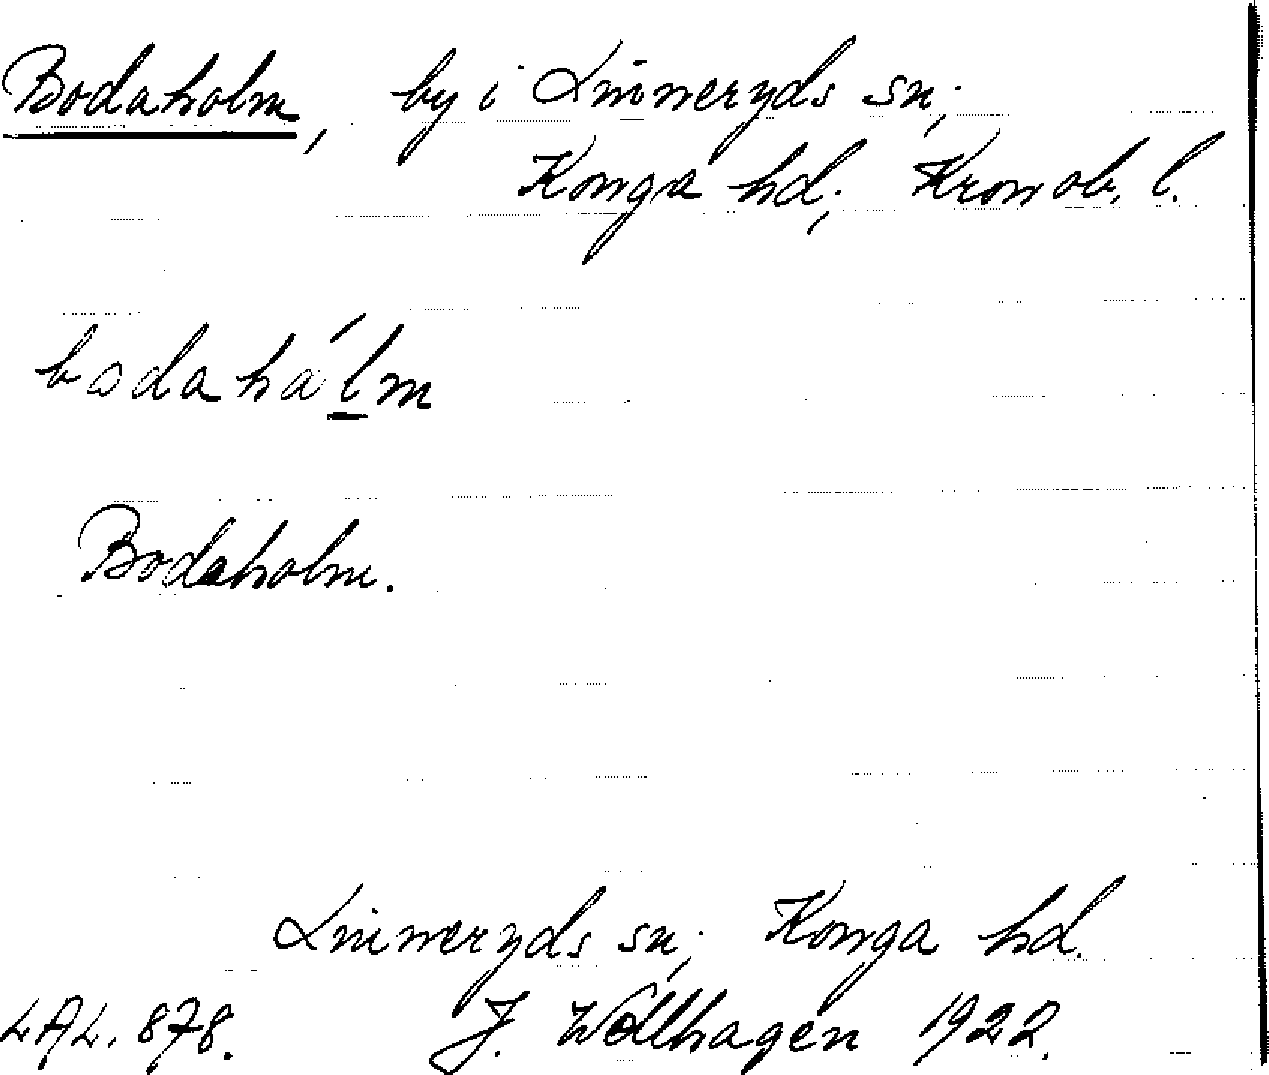 Bodaholm, by i Linneryds sn;
Konga hd; Kronob. l.
bodahálm
Bodaholm.
Linneryds sn; Konga hd.
LAL. 878. J. Wallhagen 1922.